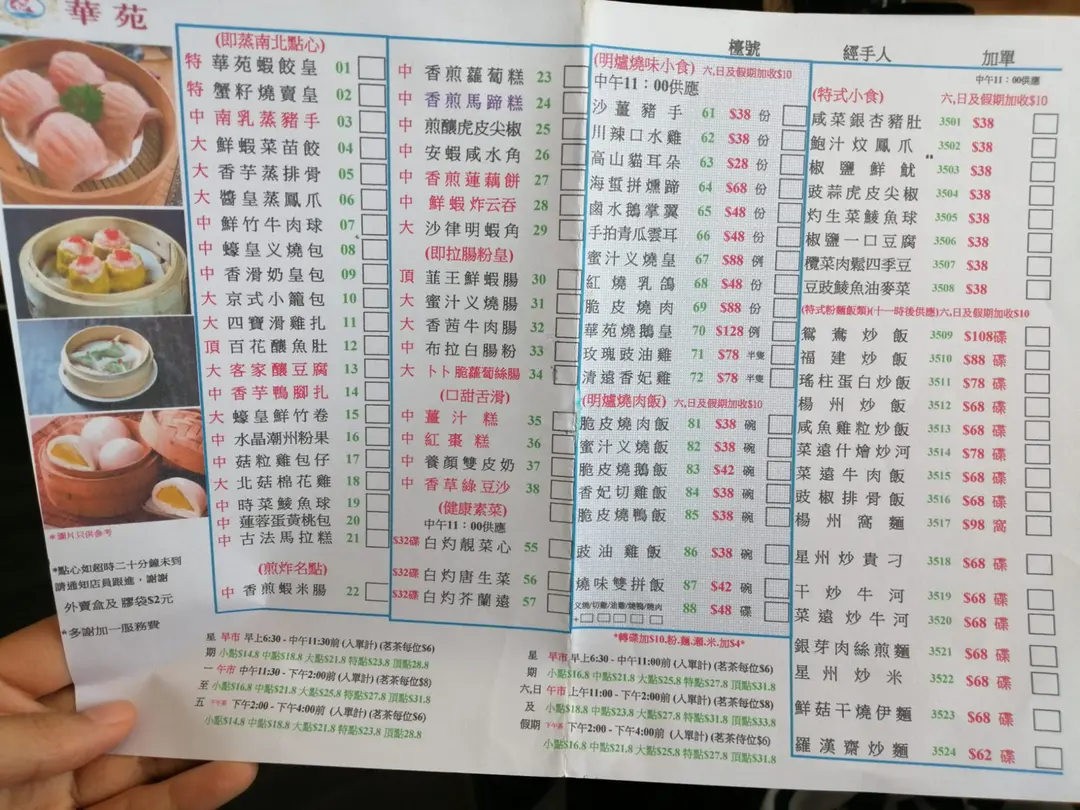 華苑
檯號 經手人 加單
(即蒸南北點心)
特 華苑蝦餃皇 01
特 蟹籽燒賣皇 02
中 南乳蒸豬手 03
大 鮮蝦菜苗餃 04
大 香芋蒸排骨 05
大 醬皇蒸鳳爪 06
中 鮮竹牛肉球 07
中 蠔皇义燒包 08
中 香滑奶皇包 09
大 京式小籠包 10
大 四寶滑雞扎 11
頂 百花釀魚肚 12
大 客家釀豆腐 13
中 香芋鴨腳扎 14
大 蠔皇鮮竹卷 15
中 水晶潮州粉果 16
中 菇粒雞包仔 17
大 北菇棉花雞 18
中 時菜鯪魚球 19
中 蓮蓉蛋黃桃包 20
中 古法馬拉糕 21
(煎炸名點)
中 香煎蝦米腸 22
中 香煎蘿蔔糕 23
中 香煎馬蹄糕 24
中 煎釀虎皮尖椒 25
中 安蝦咸水角 26
中 香煎蓮藕餅 27
中 鮮蝦炸云吞 28
大 沙律明蝦角 29
(即拉腸粉皇)
頂 韮王鮮蝦腸 30
大 蜜汁义燒腸 31
大 香茜牛肉腸 32
中 布拉白腸粉 33
大 卜卜脆蘿蔔絲腸 34
(口甜舌滑)
中 薑汁糕 35
中 紅棗糕 36
中 養顏雙皮奶 37
中 香草綠豆沙 38
(健康素菜)
中午11：00供應
$32碟 白灼靚菜心 55
$32碟 白灼唐生菜 56
$32碟 白灼芥蘭遠 57
(明爐燒味小食) 六,日及假期加收$10
中午11：00供應
沙薑豬手 61 $38 份
川辣口水雞 62 $38 份
高山貓耳朵 63 $28 份
海蜇拼燻蹄 64 $68 份
鹵水鵝掌翼 65 $48 份
手拍青瓜雲耳 66 $48 份
蜜汁义燒皇 67 $88 例
紅燒乳鴿 68 $48 份
脆皮燒肉 69 $88 份
華苑燒鵝皇 70 $128 例
玫瑰豉油雞 71 $78 半隻
清遠香妃雞 72 $78 半隻
(明爐燒肉飯) 六,日及假期加收$10
脆皮燒肉飯 81 $38 碗
蜜汁义燒飯 82 $38 碗
脆皮燒鵝飯 83 $42 碗
香妃切雞飯 84 $38 碗
脆皮燒鴨飯 85 $38 碗
豉油雞飯 86 $38 碗
燒味雙拼飯 87 $42 碗
义燒/切雞/油雞/燒鴨/燒肉 88 $48 碟
*轉碟加$10.粉.麵.瀨.米.加$4*
中午11：00供應
(特式小食) 六,日及假期加收$10
咸菜銀杏豬肚 3501 $38
鮑汁炆鳳爪 3502 $38
椒鹽鮮魷 3503 $38
豉蒜虎皮尖椒 3504 $38
灼生菜鯪魚球 3505 $38
椒鹽一口豆腐 3506 $38
欖菜肉鬆四季豆 3507 $38
豆豉鯪魚油麥菜 3508 $38
(特式粉麵飯類)(十一時後供應)六,日及假期加收$10
鴛鴦炒飯 3509 $108碟
福建炒飯 3510 $88 碟
瑤柱蛋白炒飯 3511 $78 碟
楊州炒飯 3512 $68 碟
咸魚雞粒炒飯 3513 $68 碟
菜遠什燴炒河 3514 $78 碟
菜遠牛肉飯 3515 $68 碟
豉椒排骨飯 3516 $68 碟
楊州窩麵 3517 $98 窩
星州炒貴刁 3518 $68 碟
干炒牛河 3519 $68 碟
菜遠炒牛河 3520 $68 碟
銀芽肉絲煎麵 3521 $68 碟
星州炒米 3522 $68 碟
鮮菇干燒伊麵 3523 $68 碟
羅漢齋炒麵 3524 $62 碟
*圖片只供參考
*點心如超時二十分鐘未到
請通知店員跟進，謝謝
外賣盒及膠袋$2元
*多謝加一服務費
星期一至五
早市 早上6:30 - 中午11:30前 (人單計) (茗茶每位$6)
小點$14.8 中點$18.8 大點$21.8 特點$23.8 頂點28.8
午市 中午11:30 - 下午2:00前 (人單計) (茗茶每位$8)
小點$16.8 中點$21.8 大點$25.8 特點$27.8 頂點$31.8
下午茶 下午2:00 - 下午4:00前 (人單計) (茗茶每位$6)
小點$14.8 中點$18.8 大點$21.8 特點$23.8 頂點28.8
星期六,日及假期
早市 早上6:30 - 中午11:00前 (人單計) (茗茶每位$6)
小點$16.8 中點$21.8 大點$25.8 特點$27.8 頂點$31.8
午市 上午11:00 - 下午2:00前 (人單計) (茗茶每位$8)
小點$18.8 中點$23.8 大點$27.8 特點$31.8 頂點$33.8
下午茶 下午2:00 - 下午4:00前 (人單計) (茗茶侍位$6)
小點$16.8 中點$21.8 大點$25.8 特點$27.8 頂點$31.8